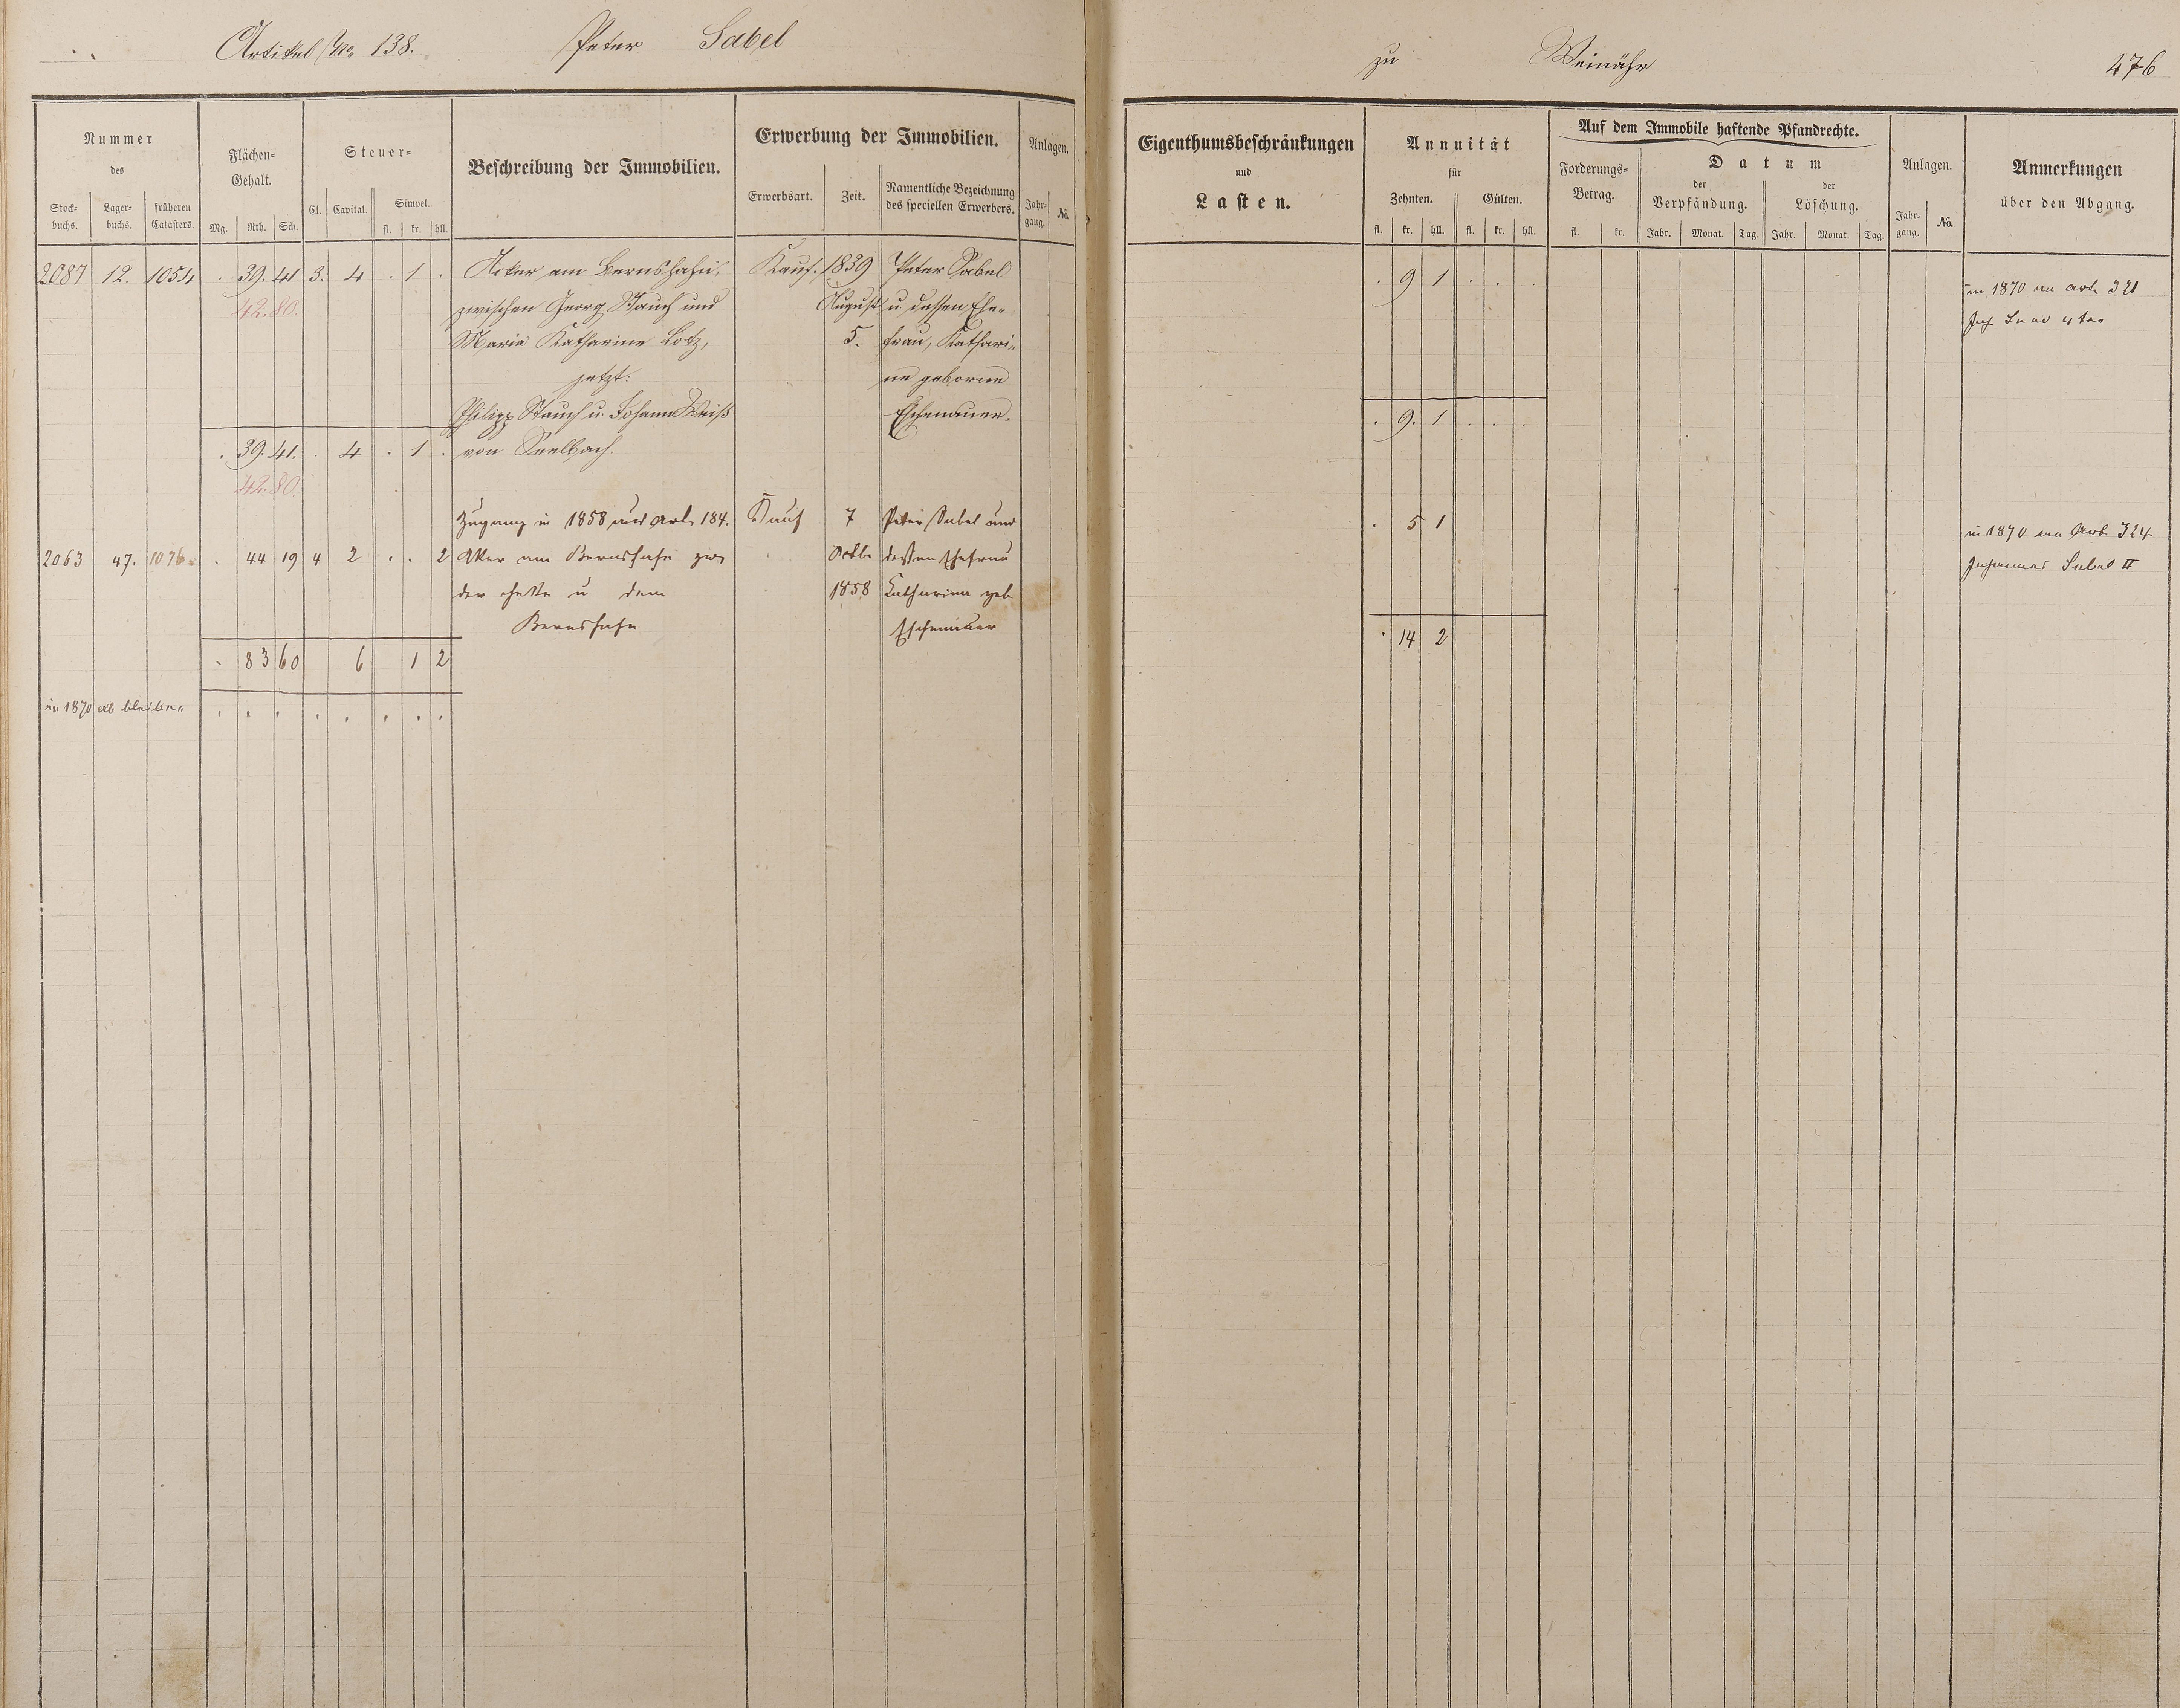 Artikel No 138. Peter Sabel
zu Weinähr 476
Nummer
des
Stock-
buchs.
Lager-
buchs.
früheren
Catasters.
Flächen-
Gehalt.
Mg. Rth. Sch.
Steuer-
Cl. Capital. Simpel.
fl. kr. hll.
Beschreibung der Immobilien.
Erwerbung der Immobilien.
Erwerbsart. Zeit. Namentliche Bezeichnung
des speciellen Erwerbers.
Anlagen.
Jahr-
gang. No
2087 12. 1054 . 39. 41 3. 4 . 1 . Acker am Bernshahn, Kauf. 1839 Peter Sabel
42. 80. zwischen Georg Stauch und August u dessen Ehe-
Maria Katharine Lotz, 5. frau, Kathari-
jetzt: ne geborne
Philipp Stauch u. Johann Weiß Eschenauer.
. 39. 41. . 4 . 1 . von Seelbach.
42. 80.
Zugang in 1858 aus Art. 184. Kauf 7 Peter Sabel und
2063 47. 1076. . 44 19 4 2 . . 2 Acker am Bernshahn zw. Octbr dessen Ehefrau
der u dem 1858 Catharina geb
Bernshahn Eschenauer
. 83 60 6 1 2
in 1870 ab bleiben . . . . . . . .
Eigenthumsbeschränkungen
und
Lasten.
Annuität
für
Zehnten. Gülten.
fl. kr. hll. fl. kr. hll.
Auf dem Immobile haftende Pfandrechte.
Forderungs-
Betrag.
fl. kr.
Datum
der
Verpfändung.
Jahr. Monat. Tag.
der
Löschung.
Jahr. Monat. Tag.
Anlagen.
Jahr-
gang. No
Anmerkungen
über den Abgang.
. 9 1 . . . in 1870 an Art. 321
. 9. 1 . . .
. 5 1 in 1870 an Art. 324
Johannes Sabel II
. 14 2